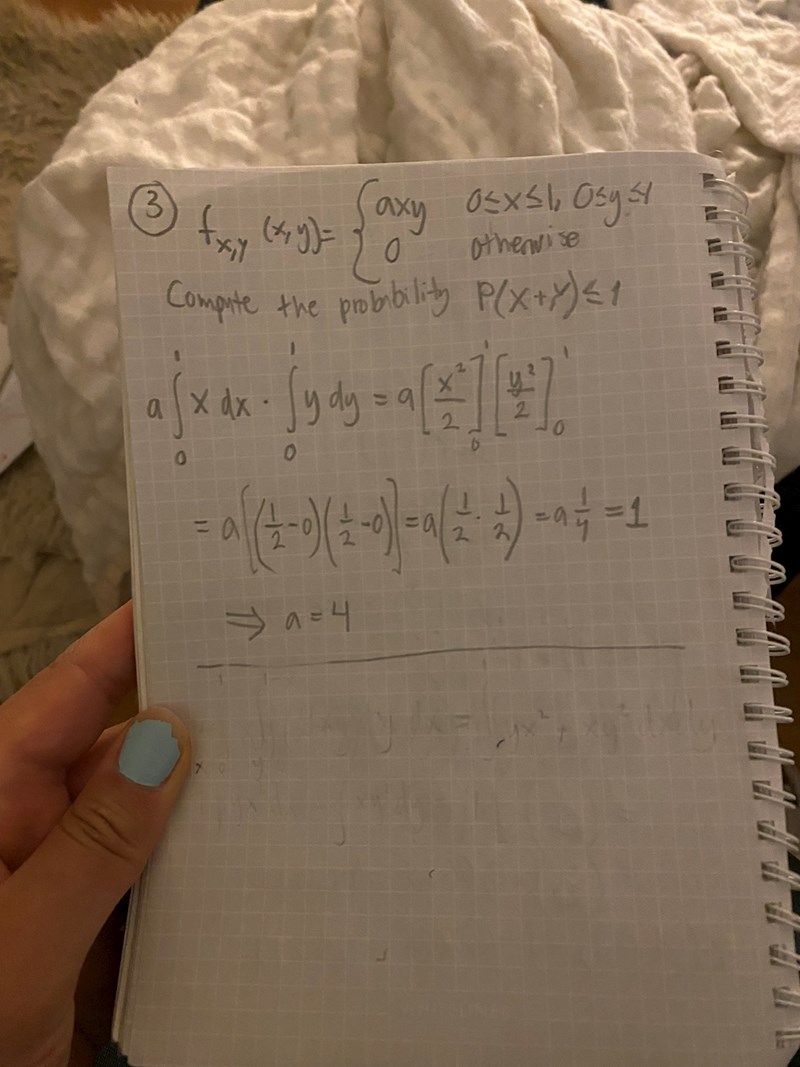 ③ f_{X,Y} (x,y) = { axy 0≤x≤1, 0≤y≤1
0 otherwise
Compute the probability P(X+Y)≤1
a ∫_0^1 x dx · ∫_0^1 y dy = a [x²/2]_0^1 [y²/2]_0^1
= a[(1/2 -0)(1/2 -0)] = a(1/2 · 1/2) = a 1/4 = 1
⇒ a = 4